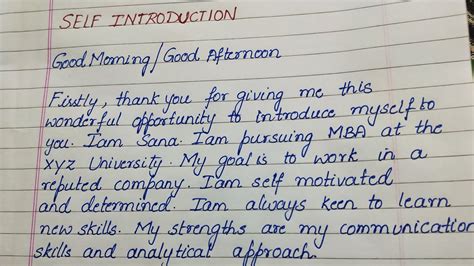 SELF INTRODUCTION
Good Morning/Good Afternoon
Firstly, thank you for giving me this
wonderful opportunity to introduce myself to
you. Iam Sana. Iam pursuing MBA at the
xyz University. My goal is to work in a
reputed company. Iam self motivated
and determined. Iam always keen to learn
new skills. My strengths are my communication
skills and analytical approach.